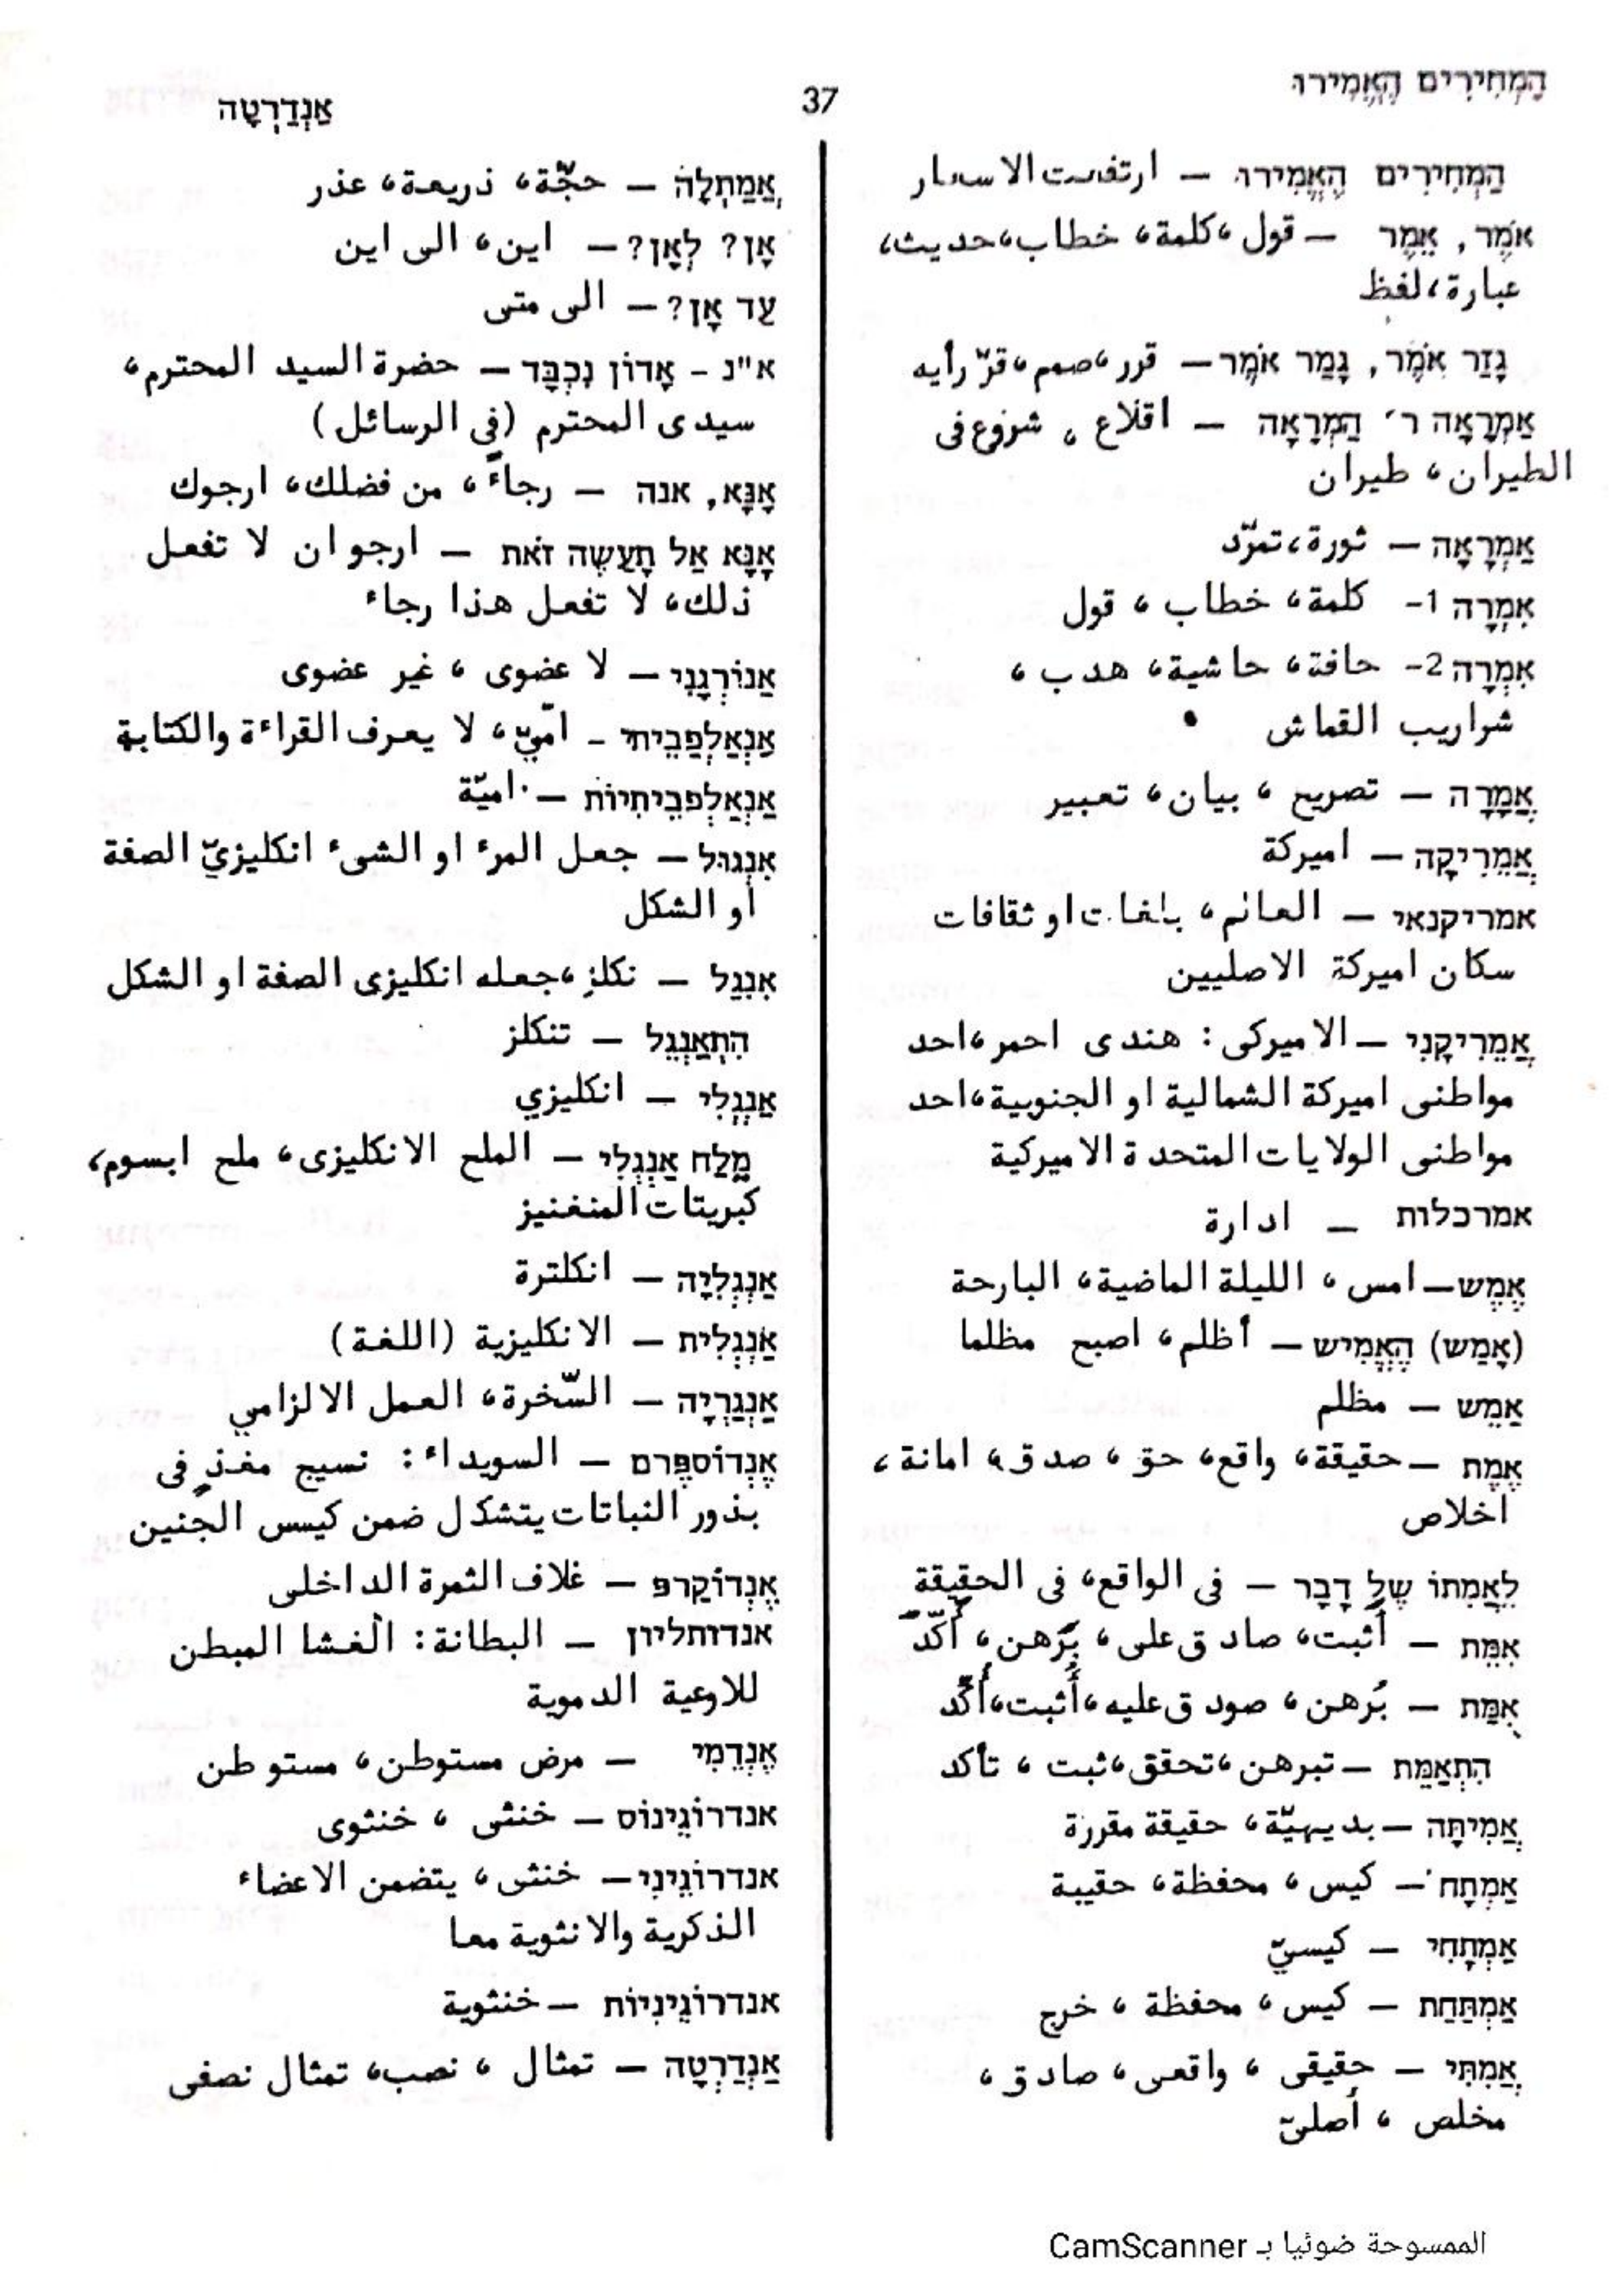 הַמְּחִירִים הֶאֱמִירוּ
37
אַנְדַּרְטָה
הַמְּחִירִים הֶאֱמִירוּ – ارتفعت الاسعار
אֹמֶר, אֵמֶר – قول، كلمة، خطاب، حديث،
عبارة، لفظ
גָּזַר אֹמֶר, גָּמַר אֹמֶר – قرر، صمم، قرّ رأيه
אַמְרָאָה ר׳ הַמְרָאָה – اقلاع، شروع فى
الطيران، طيران
אַמְרָאָה – ثورة، تمرّد
אִמְרָה 1- كلمة، خطاب، قول
אִמְרָה 2- حافة، حاشية، هدب،
شراريب القماش •
אֲמָרָה – تصريح، بيان، تعبير
אֲמֵרִיקָה – اميركة
אמריקנאי – العالم، بلغات او ثقافات
سكان اميركة الاصليين
אֲמֵרִיקָנִי – الاميركى: هندى احمر، احد
مواطنى اميركة الشمالية او الجنوبية، احد
مواطنى الولايات المتحدة الاميركية
אמרכלות – ادارة
אֶמֶשׁ – امس، الليلة الماضية، البارحة
(אָמַשׁ) הֶאֱמִישׁ – أظلم، اصبح مظلما
אַמֵּשׁ – مظلم
אֱמֶת – حقيقة، واقع، حق، صدق، امانة،
اخلاص
לַאֲמִתּוֹ שֶׁל דָּבָר – فى الواقع، فى الحقيقة
אִמֵּת – أثبت، صادق على، بَرهن، أكّد
אֻמַּת – بُرهن، صودق عليه، أُثبت، أُكّد
הִתְאַמֵּת – تبرهن، تحقق، ثبت، تأكد
אֲמִיתָּה – بديهيّة، حقيقة مقررة
אַמְתָּח – كيس، محفظة، حقيبة
אַמְתָּחִי – كيسيّ
אַמְתַּחַת – كيس، محفظة، خرج
אֲמִתִּי – حقيقى، واقعى، صادق،
مخلص، أصليّ
אֲמַתְלָה – حجّة، ذريعة، عذر
אָן? לְאָן? – اين، الى اين
עַד אָן? – الى متى
א"נ – אָדוֹן נִכְבָּד – حضرة السيد المحترم،
سيدى المحترم (في الرسائل)
אָנָּא, אנה – رجاءً، من فضلك، ارجوك
אָנָּא אַל תַּעֲשֶׂה זֹאת – ارجو ان لا تفعل
ذلك، لا تفعل هذا رجاء
אַנוֹרְגָנִי – لا عضوى، غير عضوى
אַנְאַלְפַבֵּיתִי – امّيّ، لا يعرف القراءة والكتابة
אַנְאַלְפבֵּיתִיוּת – اميّة
אִנְגּוּל – جعل المرء او الشىء انكليزيّ الصفة
أو الشكل
אִנְגֵּל – نكلز، جعله انكليزى الصفة او الشكل
הִתְאַנְגֵּל – تنكلز
אַנְגְּלִי – انكليزي
מֶלַח אַנְגְּלִי – الملح الانكليزى، ملح ابسوم،
كبريتات المنغنيز
אַנְגְּלִיָּה – انكلترة
אַנְגְּלִית – الانكليزية (اللغة)
אַנְגַּרְיָה – السّخرة، العمل الالزامي
אֶנְדּוֹסְפֶּרם – السويداء: نسيج مغذٍ فى
بذور النباتات يتشكل ضمن كيسس الجنين
אֶנְדּוֹקַרפּ – غلاف الثمرة الداخلى
אנדותליון – البطانة: الغشا المبطن
للاوعية الدموية
אֶנְדֵּמִי – مرض مستوطن، مستوطن
אנדרוֹגִינוֹס – خنثى، خنثوى
אנדרוֹגִינִי – خنثى، يتضمن الاعضاء
الذكرية والانثوية معا
אנדרוֹגִינִיוּת – خنثوية
אַנְדַּרְטָה – تمثال، نصب، تمثال نصفى
الممسوحة ضوئيا بـ CamScanner